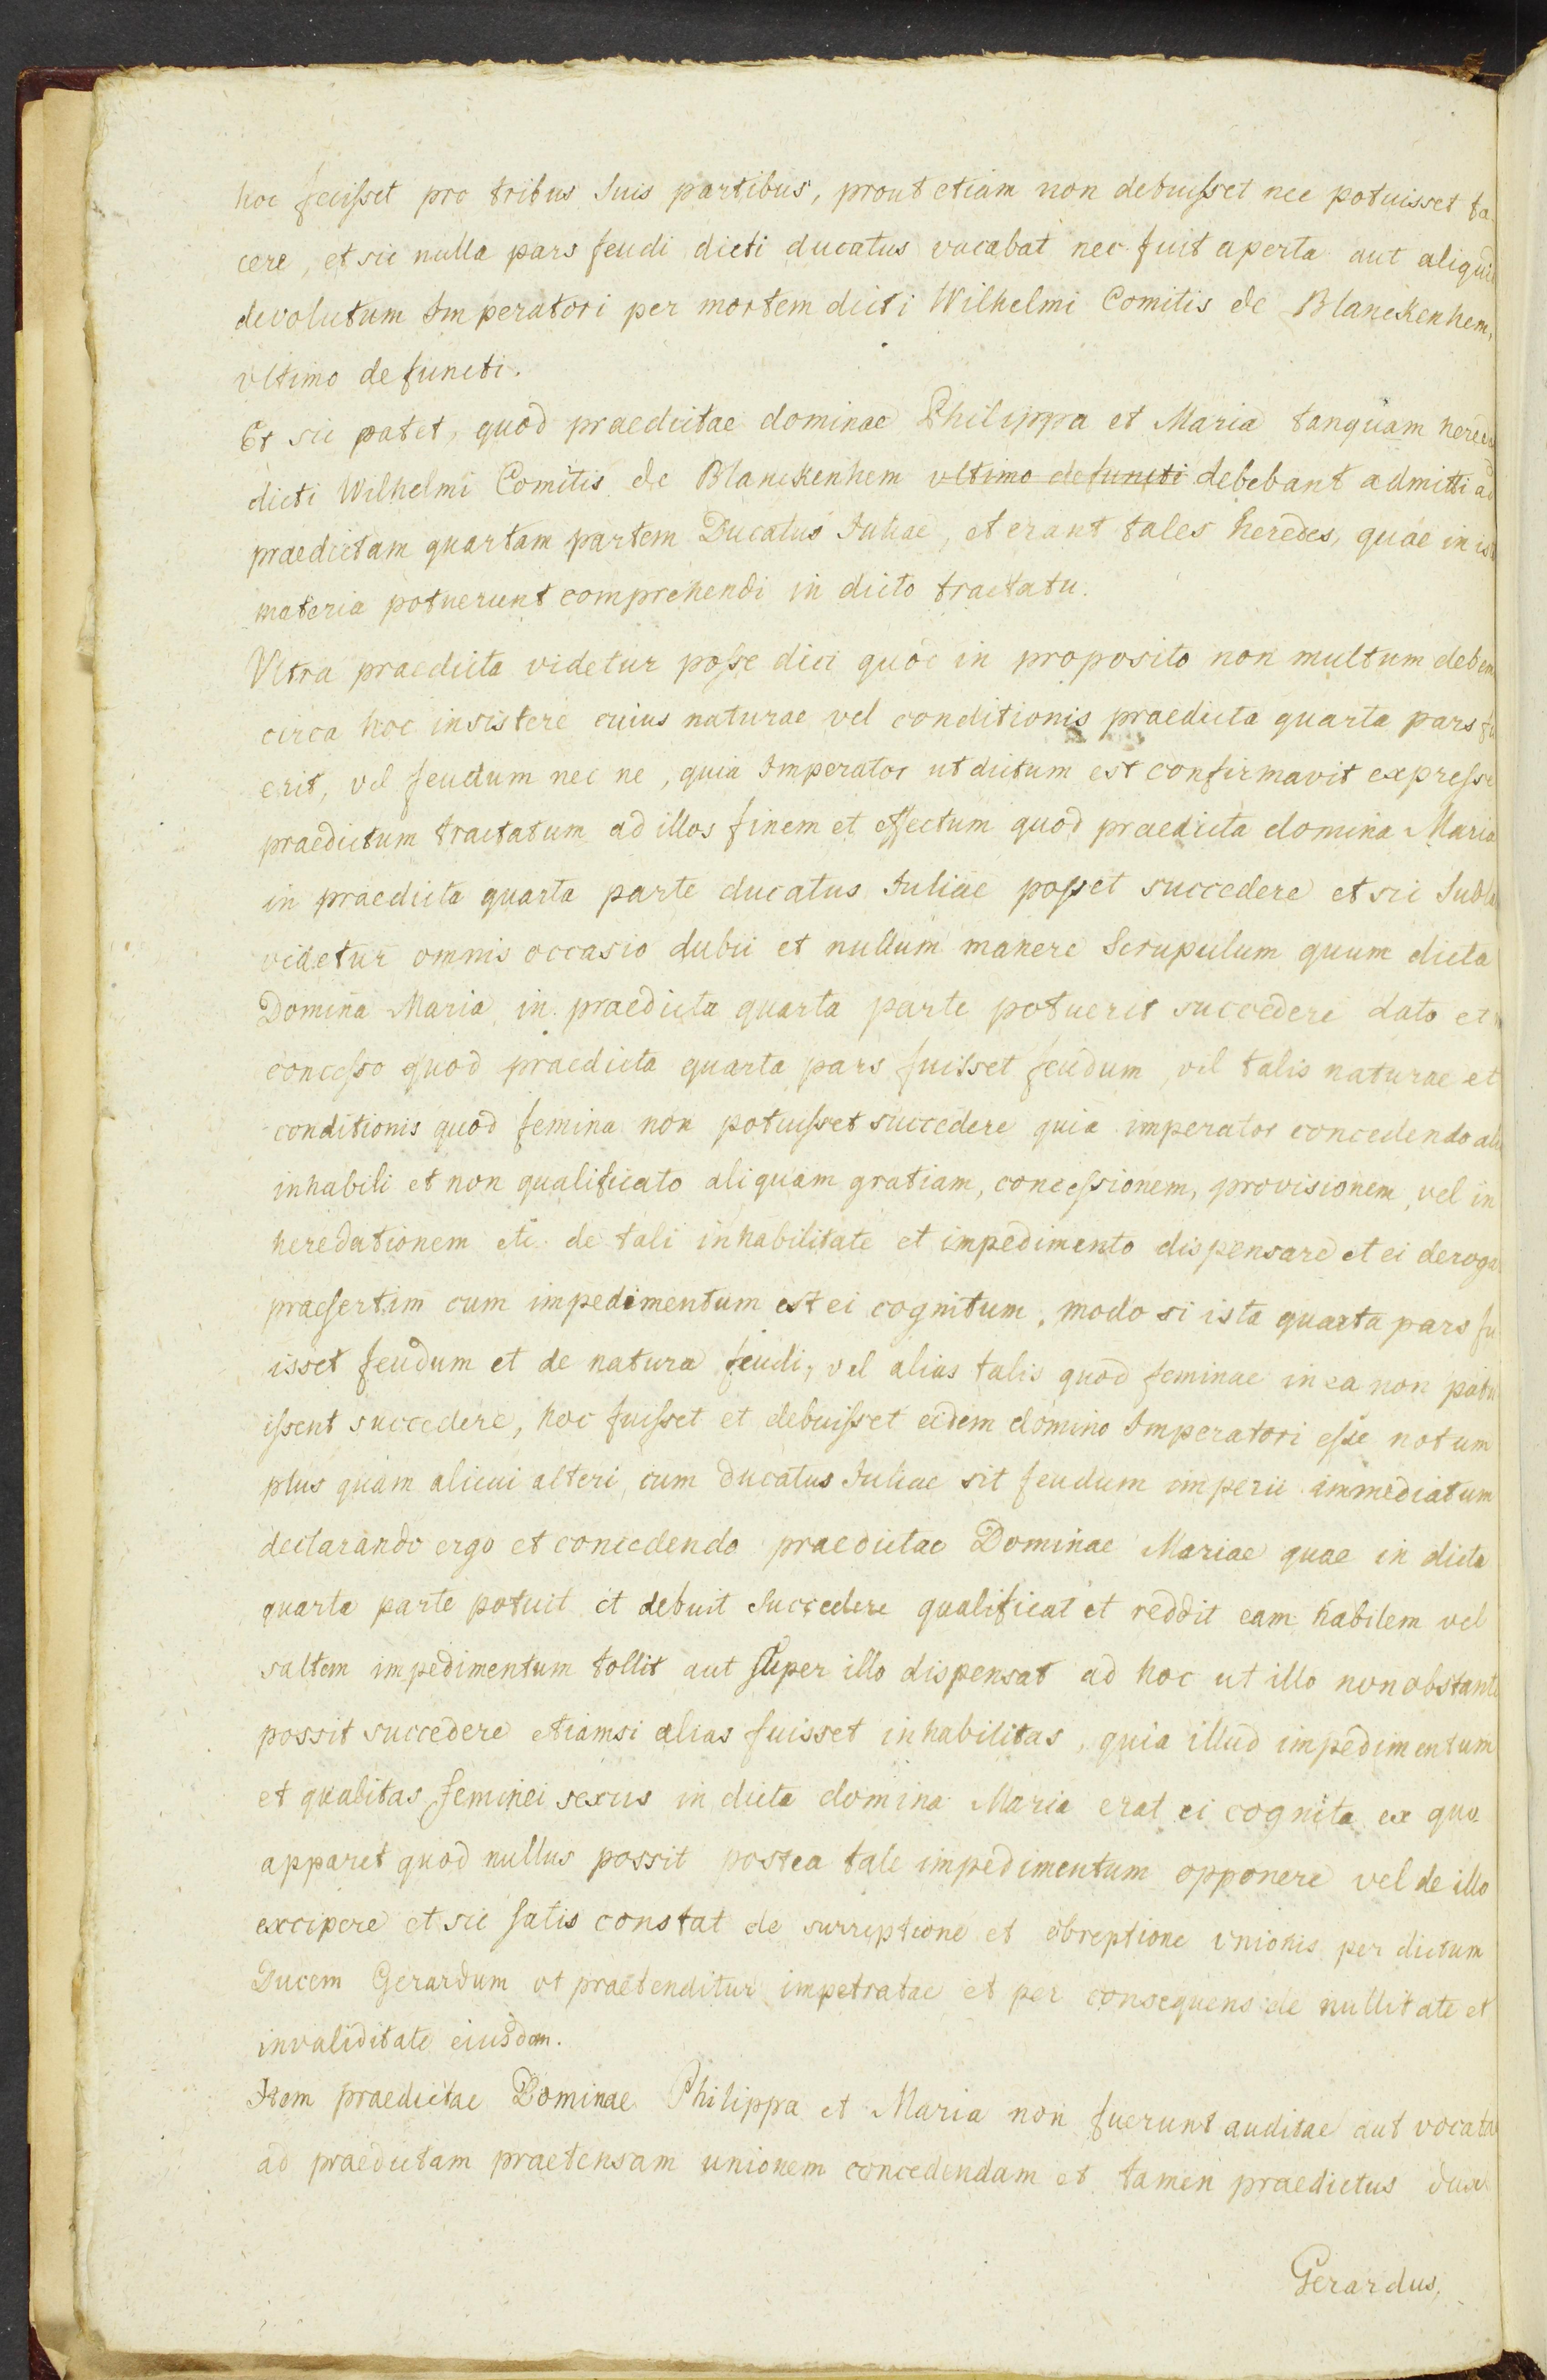 hoc fecisset pro tribus suis partibus, prout etiam non debuisset nec potuisset fa
cere, et sic nulla pars feudi dicti ducatus vacabat nec fuit aperta aut aliquid
devolutum Imperatori per mortem dicti Wilhelmi Comitis de Blanckenhem,
vltimo defuncti.
Et sic patet, quod praedictae dominae Philippa et Maria tanquam
dicti Wilhelmi Comitis de Blanckenhem vltimo defuncti debebant admitti ad
praedictam quartam partem Ducatus Juliae, et erant tales heredes, quae in
materia potuerunt comprehendi in dicto tractatu.
Vltra praedicta videtur posse dici quod in proposito non multum
circa hoc insistere cuius naturae vel conditionis praedicta quarta pars fu
erit, vel feudum nec ne, quia Imperator ut dictum est confirmavit expresse
praedictum tractatum ad illos finem et effectum quod praedicta domina Maria
in praedicta quarta parte ducatus Juliae posset succedere et sic
videtur omnis occasio dubii et nullum manere scrupulum quum dicta
Domina Maria in praedicta quarta parte potuerit succedere dato et
concesso quod praedicta quarta pars fuisset feudum, vel talis naturae et
conditionis quod femina non potuisset succedere quia imperator concedendo
inhabili et non qualificato aliquam gratiam, concessionem, provisionem, vel in
heredationem etc. de tali inhabilitate et impedimento dispensare et ei
praesertim cum impedimentum est ei cognitum, modo si ista quarta pars fu
isset feudum et de natura feudi, vel alias talis quod feminae in ea non potu
issent succedere, hoc fuisset et debuisset eidem domino Imperatori esse notum
plus quam alicui alteri, cum ducatus Juliae sit feudum imperii immediatum
declarando ergo et concedendo praedictae Dominae Mariae quae in dicta
quarta parte potuit et debuit succedere qualificat et reddit eam habilem vel
saltem impedimentum tollit aut super illo dispensat ad hoc ut illo non obstante
possit succedere etiamsi alias fuisset inhabilitas, quia illud impedimentum
et qualitas feminei sexus in dicta domina Maria erat ei cognita ex quo
apparet quod nullus possit postea tale impedimentum opponere vel de illo
excipere et sic satis constat de surreptione et obreptione vnionis per dictum
Ducem Gerardum vt praetenditur impetratae et per consequens de nullitate et
invaliditate eiusdem.
Item praedictae Dominae Philippa et Maria non fuerunt auditae aut vocatae
ad praedictam praetensam unionem concedendam et tamen praedictus dux
Gerardus,